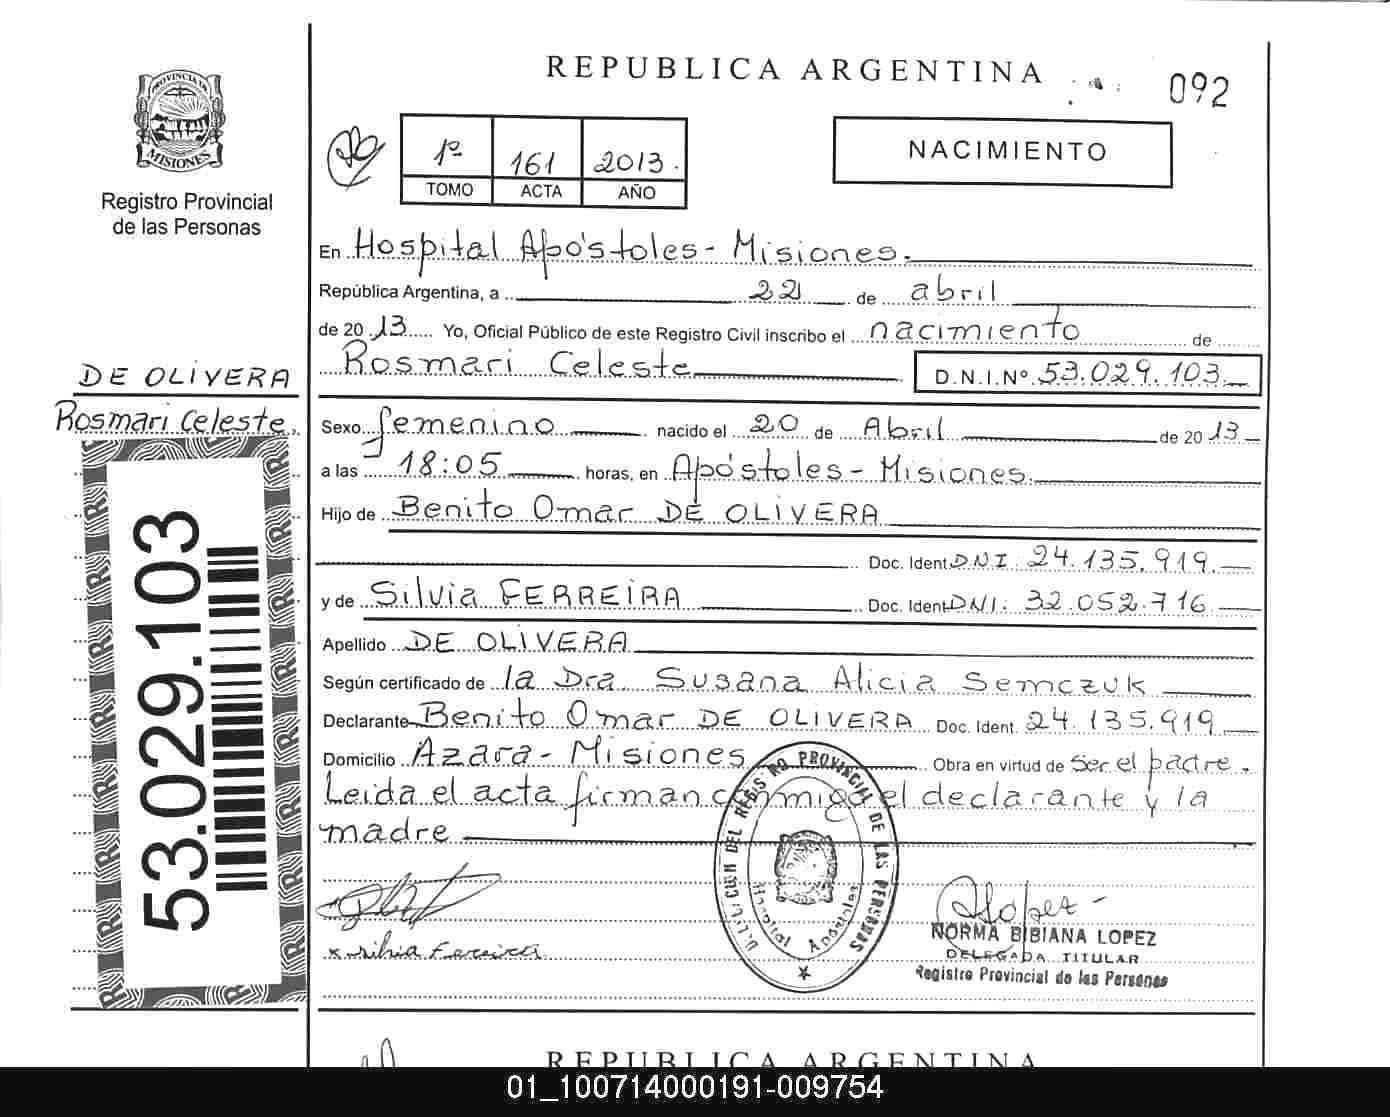 REPUBLICA ARGENTINA
092
PROVINCIA DE
MISIONES
Registro Provincial
de las Personas
1º 161 2013.
TOMO ACTA AÑO
NACIMIENTO
En Hospital Apóstoles - Misiones.
República Argentina, a 22 de abril
de 2013 Yo, Oficial Público de este Registro Civil inscribo el nacimiento de
Rosmari Celeste D.N.I.Nº 53.029.103
DE OLIVERA
Rosmari Celeste.
Sexo femenino nacido el 20 de Abril de 2013
a las 18:05 horas, en Apóstoles - Misiones.
Hijo de Benito Omar DE OLIVERA
Doc. Ident DNI: 24.135.919.
y de Silvia FERREIRA Doc. Ident DNI: 32.052.716.
Apellido DE OLIVERA
Según certificado de la Dra. Susana Alicia Semczuk
Declarante Benito Omar DE OLIVERA Doc. Ident. 24.135.919
Domicilio Azara - Misiones Obra en virtud de Ser el padre.
Leida el acta firman conmigo el declarante y la
madre
53.029.103
DELEGACION DEL REGISTRO PROVINCIAL DE LAS PERSONAS
Hospital Apóstoles
x Silvia Ferreira
López
NORMA BIBIANA LOPEZ
DELEGADA TITULAR
Registro Provincial de las Personas
REPUBLICA ARGENTINA
01_100714000191-009754